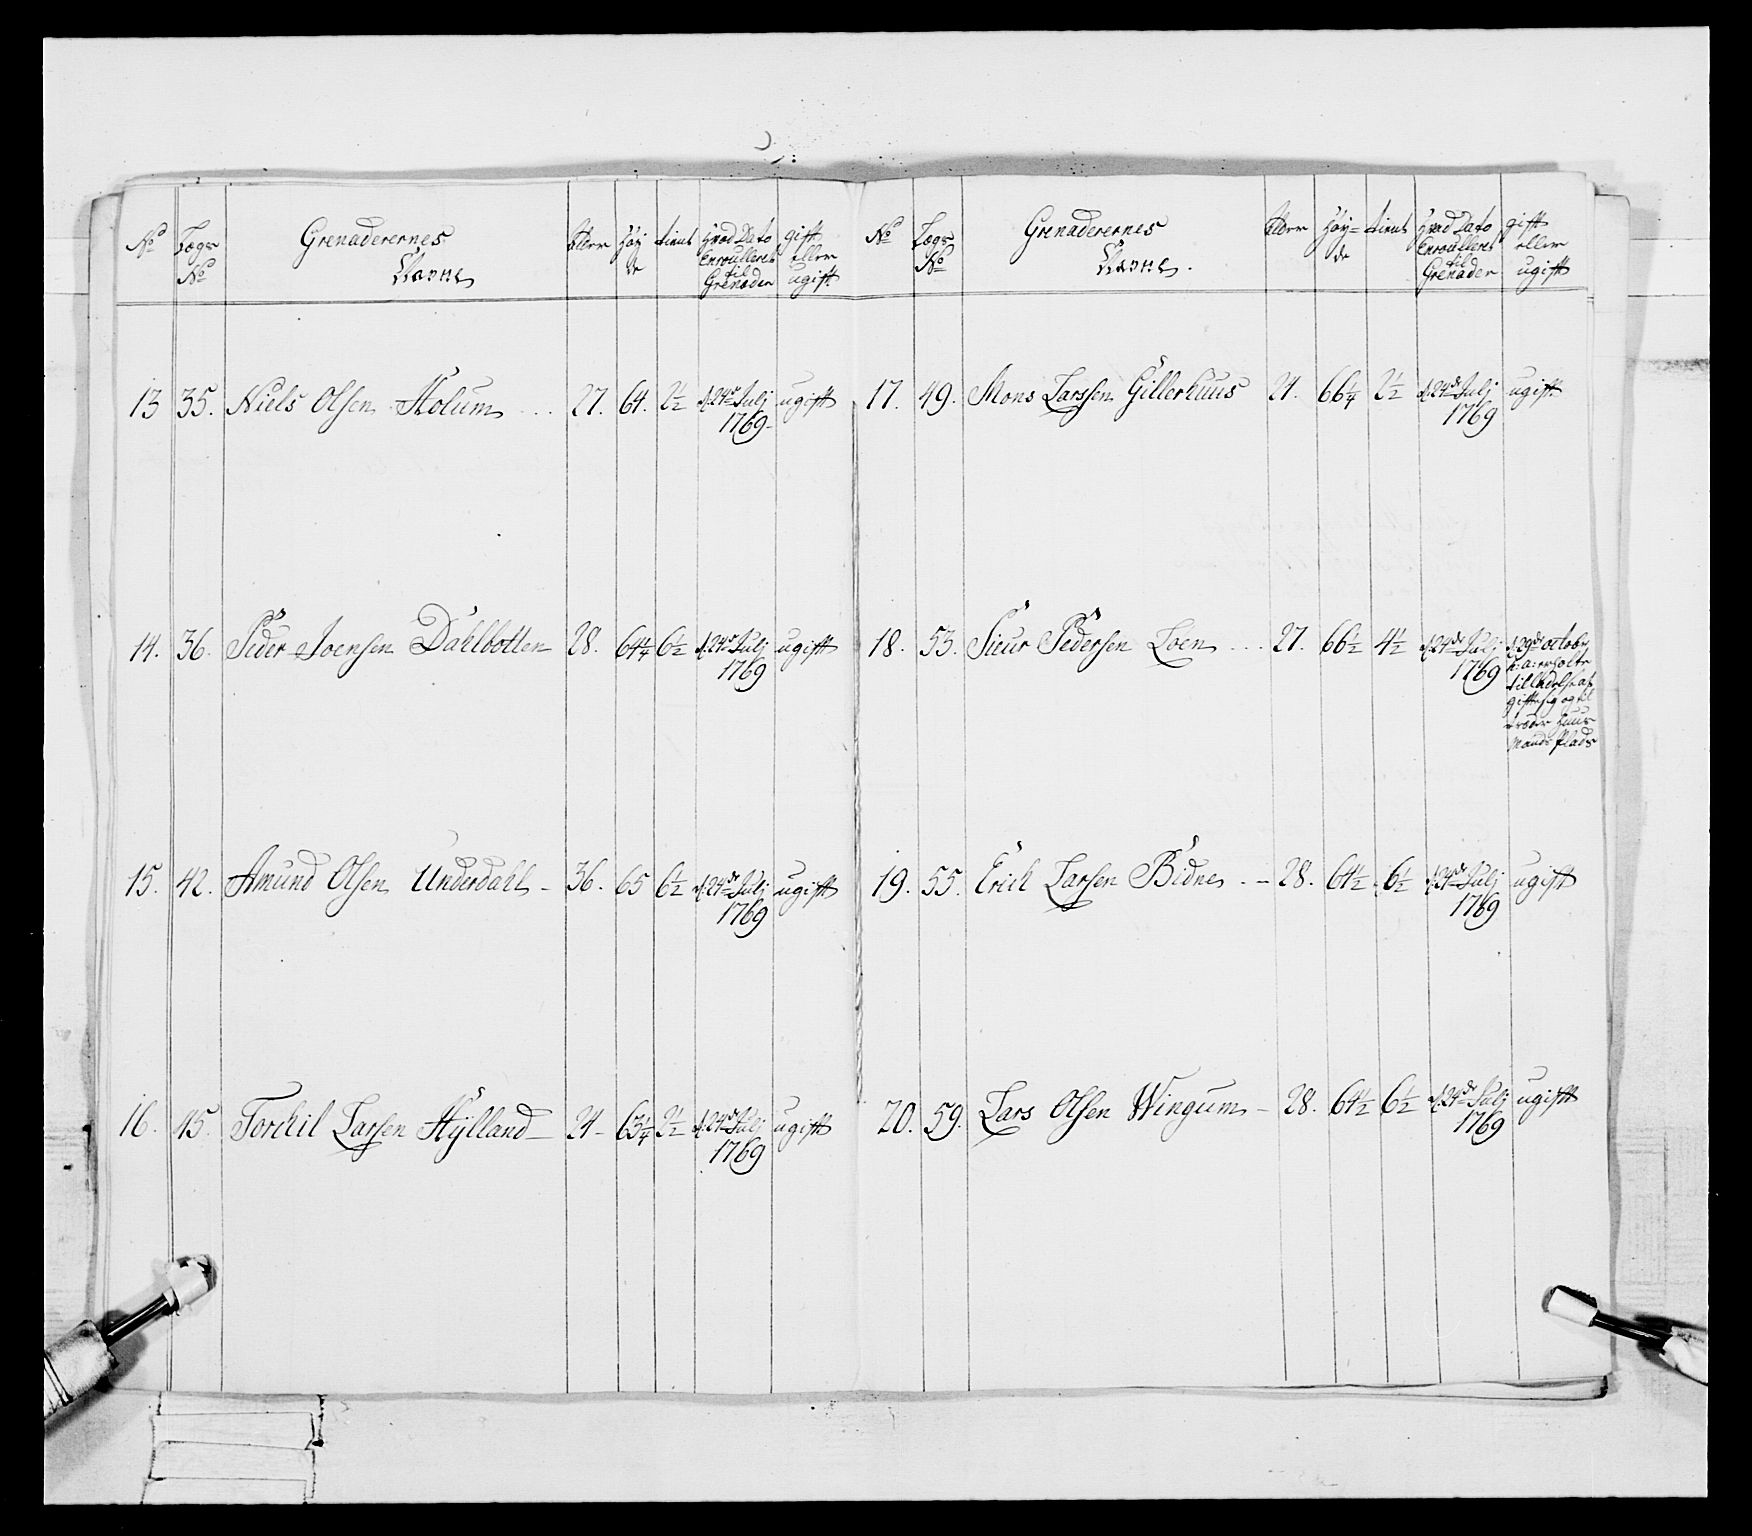 No Lægs No Grenaderernes Navne Alder Høyde tient Hvad Dato Enroulleret til Grenader gift eller ugift
13 35. Niels Olsen Holum ... 27. 64. 2½ d. 24de Julj 1769- ugift
14. 36. Peder Joensen Dahlbotten 28. 64¼ 6½ d. 24de Julj 1769 ugift
15. 42. Amund Olsen Underdahl - 36. 65 6½ d. 24de Julj 1769 ugift
16. 45. Torchil Larsen Hÿlland - 24- 63¼ 2½ d. 24de Julj 1769 ugift
No Lægs No Grenaderernes Navne. Alder Høy=de tient Hvad Dato Enroulleret til Grenader gift eller ugift
17. 49. Mons Larssen Gillerhuus 21. 66¼ 2½ d. 24de Julj 1769 ugift
18. 53. Siur Pedersen Loen ... 27. 66½ 4½ d. 24de Julj 1769 d. 29de octobr
h: a: erholte
tilladelse at
gifte sig og til
træder Huus
Mands Plads
19. 55. Erich Larsen Bidne . - 28. 64½ 6½ d. 24de Julj 1769 ugift
20. 59. Lars Olsen Wingum - 28. 64½ 6½ d. 24de Julj 1769 ugift